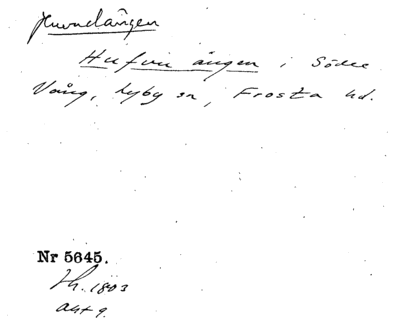 Huvudängen
Hufvu ängen i Södre
Vång, Lyby sn, Frosta hd.
Nr 5645.
Sk. 1803
akt 9.